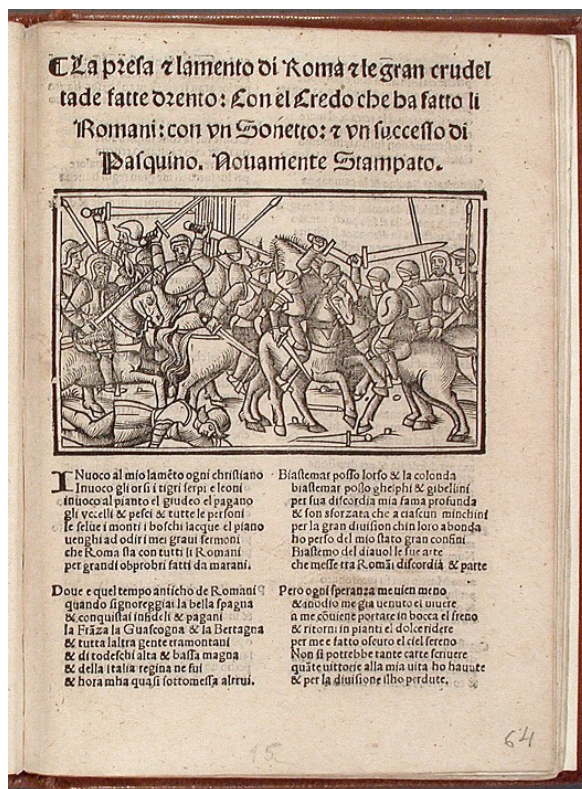 La presa ⁊ lamento di Roma ⁊ le gran crudel
tade fatte drento: Con el Credo che ha fatto li
Romani: con vn Sonetto: ⁊ vn successo di
Pasquino. Novamente Stampato.
INuoco al mio lamẽto ogni christiano
Inuoco gli orsi i tigri serpi e leoni
inuoco al pianto el giudeo el pagano
gli vcelli & pesci & tutte le personi
le selue i monti i boschi lacque el piano
uenghi ad odir i mei graui sermoni
che Roma sta con tutti li Romani
per grandi obprobri fatti da marani.
Doue e quel tempo anticho de Romani
quando signoreggiai la bella spagna
& conquistai infideli & pagani
la Frãza la Guascogna & la Bertagna
& tutta laltra gente tramontani
& di todeschi alta & bassa magna
& della italia regina ne fui
& hora mha quasi sottomessa altrui.
Biastemar posso lorso & la colonda
biastemar posso ghelphi & gibellini
per sua discordia mia fama profonda
& son sforzata che a ciascun minchini
per la gran diuision chin loro abonda
ho perso del mio stato gran confini
Biastemo del diauol le sue arte
che messe tra Romãi discordia & parte
Pero ogni speranza me uien meno
& anodio me gia uenuto el uiuere
a me cõuiene portare in bocca el freno
& ritorni in pianti el dolce ridere
per me e fatto obscuro el ciel sereno
Non si potrebbe tante carte scriuere
quãte uittorie alla mia uita ho hauute
& per la diuisione ilho perdute.
15
64